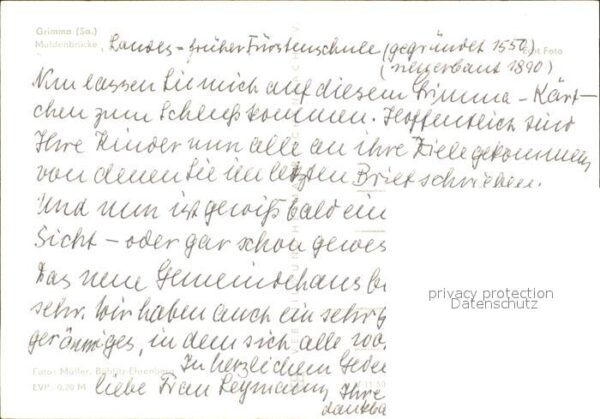 Grimma (Sa.)
Muldenbrücke, Landes-früher Fürstenschule (gegründet 1550)
Echt Foto
(neuerbaut 1890)
Nun lassen Sie mich auf diesem Grimma-Kärt-
chen zum Schluß kommen. Hoffentlich sind
Ihre Kinder nun alle an ihre Ziele gekommen,
von denen Sie im letzten Brief schrieben.
Und nun ist gewiß bald ein
Sicht - oder gar schon gewes
Das neue Gemeindehaus
sehr. Wir haben auch ein sehr
geräumiges, in dem sich alle
In herzlichem Gede
liebe Frau Leymann, Ihre
dankba
Foto: Müller, Böhlitz-Ehrenberg
EVP: 0,20 M
privacy protection
Datenschutz